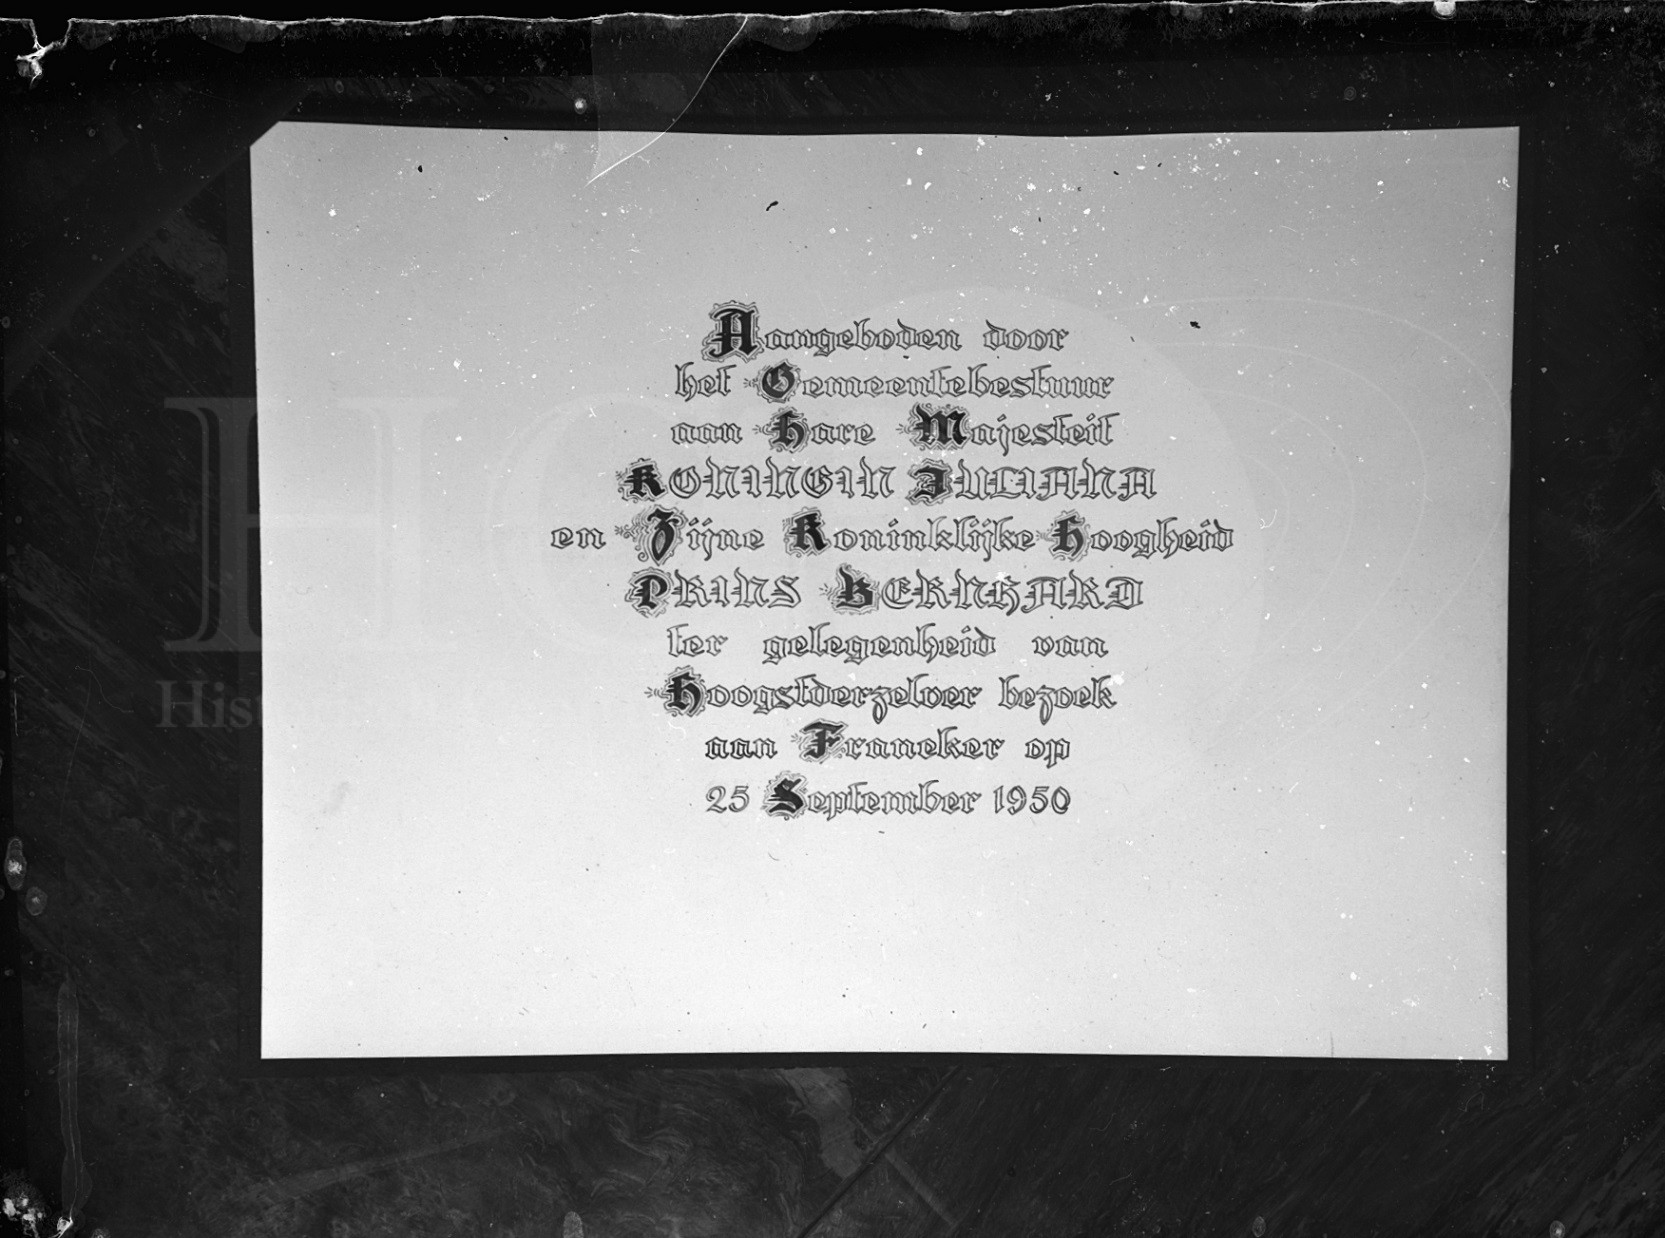 Aangeboden door
het Gemeentebestuur
aan Hare Majesteit
KONINGIN JULIANA
en Zijne Koninklijke Hoogheid
PRINS BERNHARD
ter gelegenheid van
Hoogstderzelver bezoek
aan Franeker op
25 September 1950